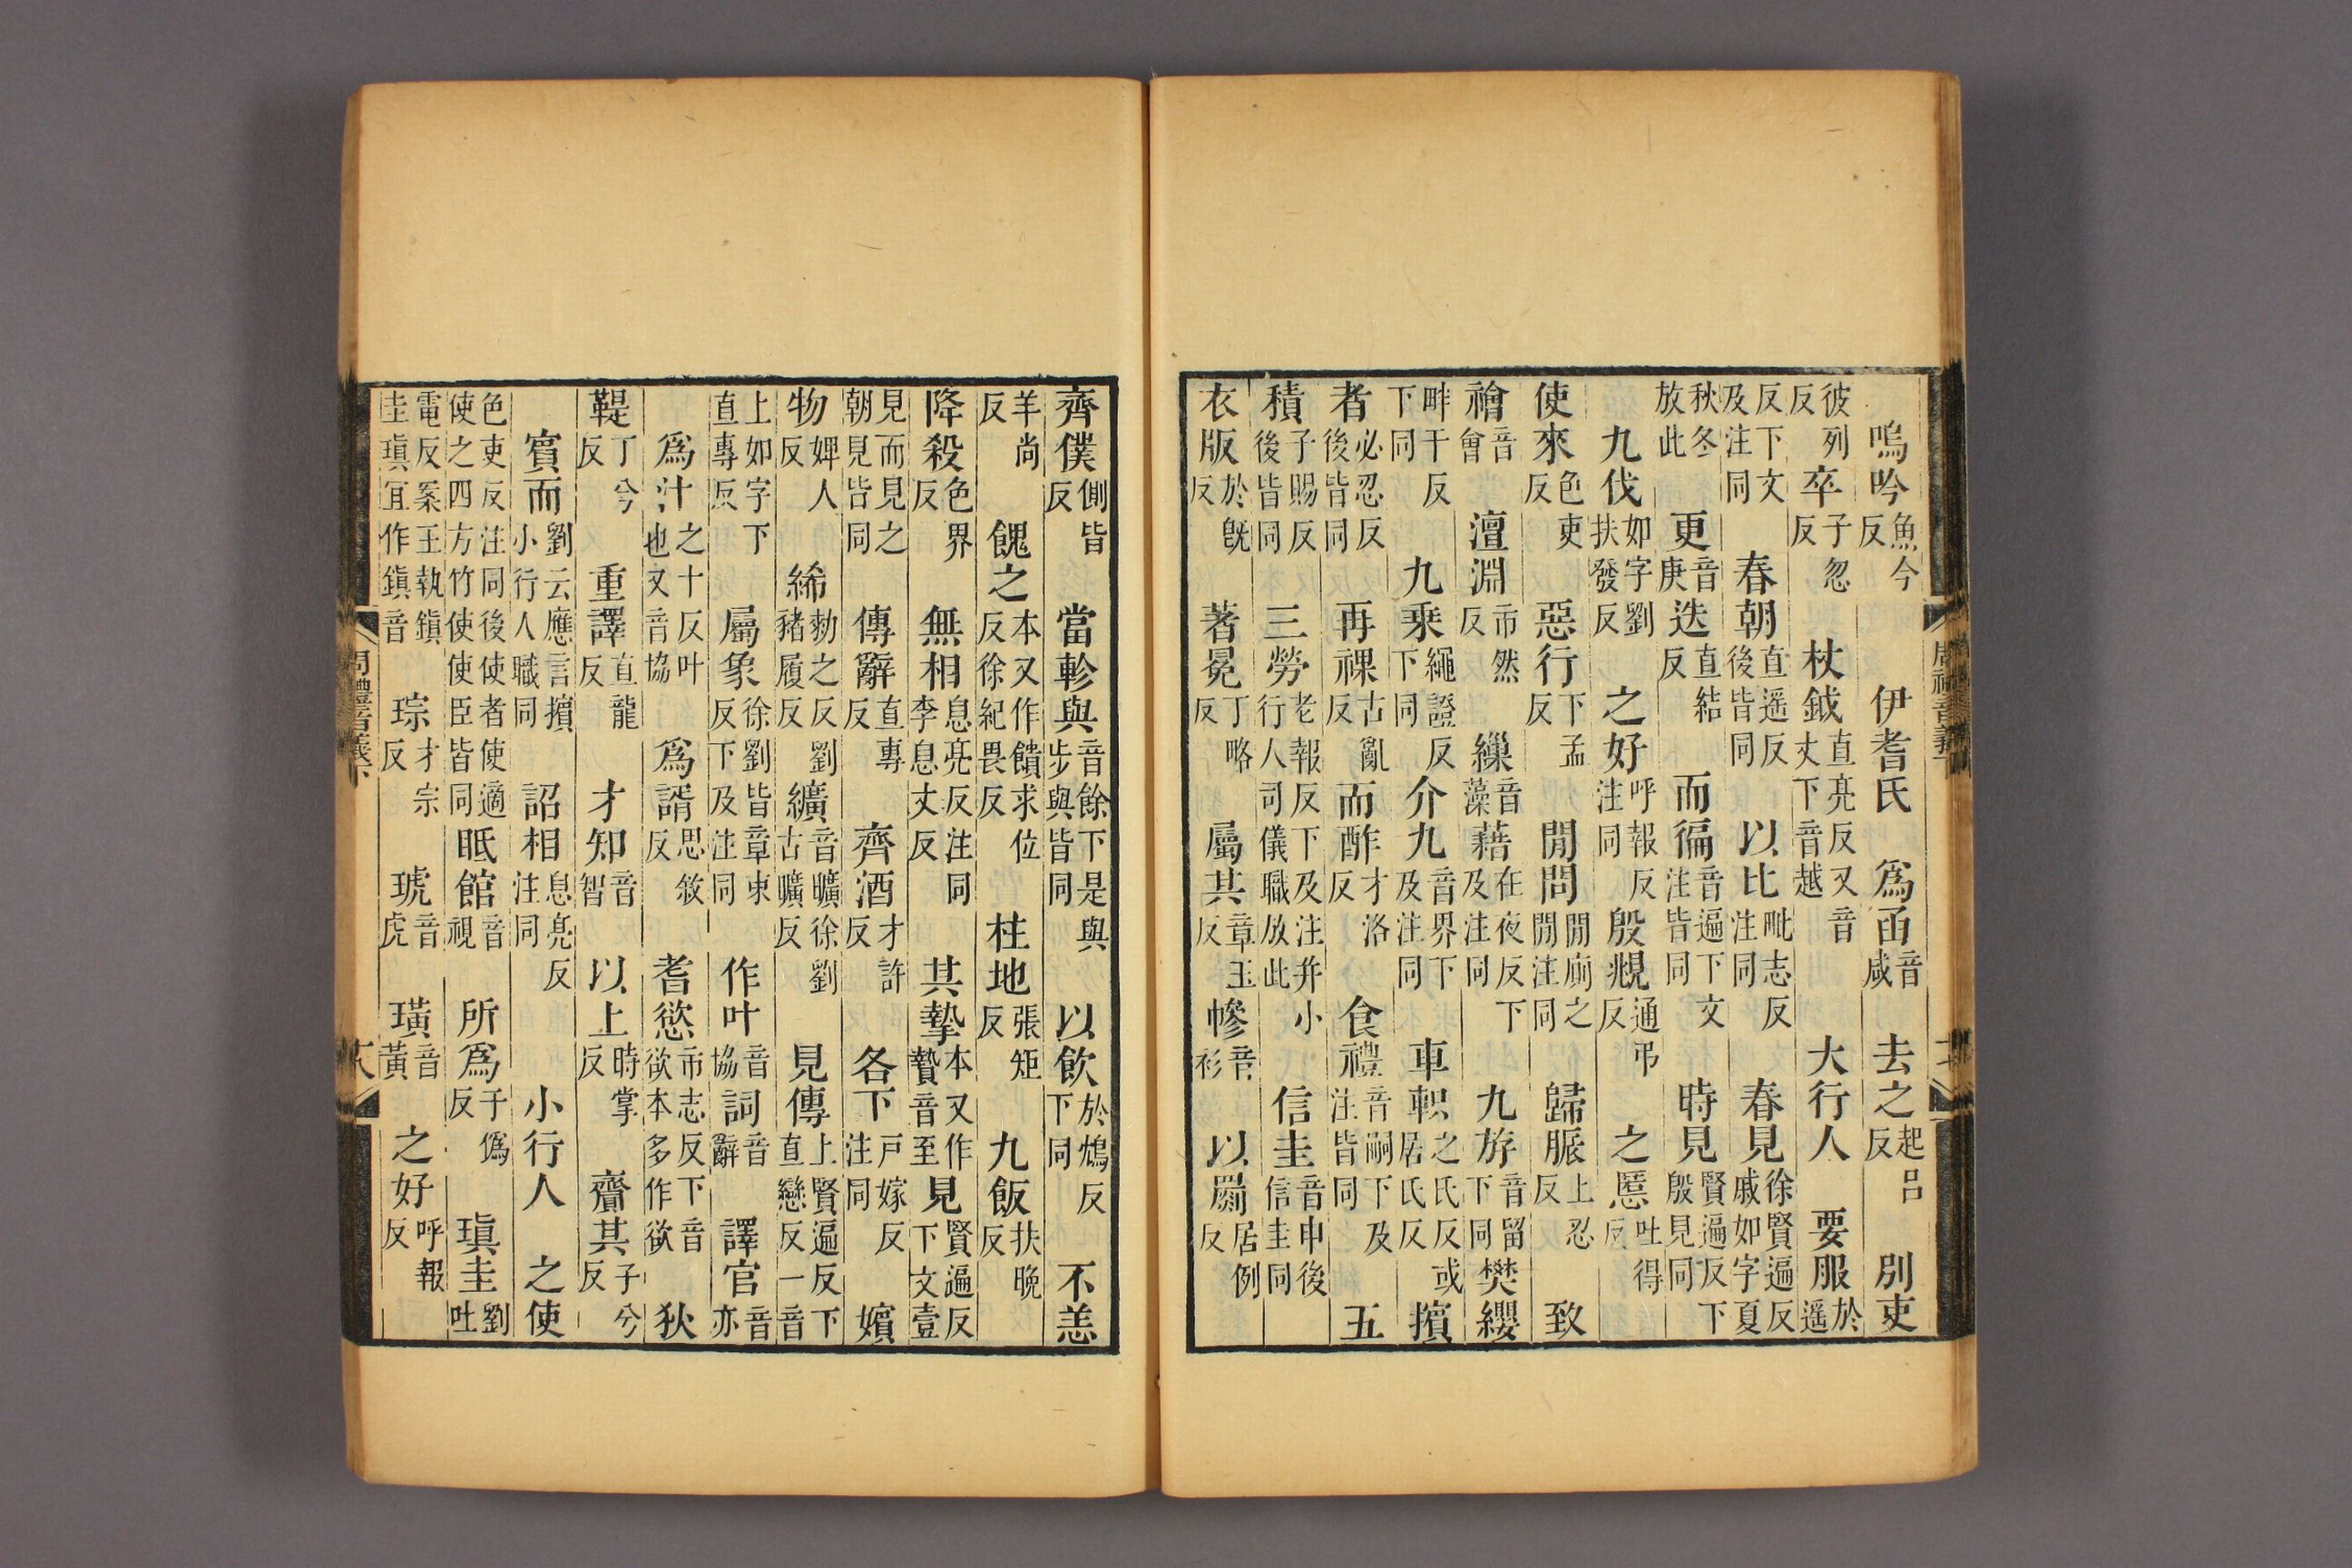 嗚吟魚今反　伊耆氏　爲函音咸　去之起呂反　別吏
彼列反　卒子忽反　杖鉞直亮反又音丈下音越　大行人　要服於遥
反下文及注同　春朝直遥反後皆同　以比毗志反注同　春見徐賢遍反戚如字夏
秋冬放此　更音庚　迭直結反　而徧音遍下文注皆同　時見賢遍反下殷見同
九伐如字劉扶發反　之好呼報反注同　殷覜通弔反　之慝吐得反
使來色吏反　惡行下孟反　閒問閒廁之閒注同　歸脤上忍反　致
禬音會　澶淵市然反　繅音藻　藉在夜反下及注同　九斿音留下同　樊纓
畔干反下同　九乘繩證反下同　介九音界下及注同　車軹之氏反或居氏反　擯
者必忍反後皆同　再祼古亂反　而酢才洛反　食禮音嗣下及注皆同　五
積子賜反後皆同　三勞老報反下及注并小行人司儀職放此　信圭音申後信圭同
衣版於旣反　著冕丁略反　屬其章玉反　幓音衫　以罽居例反
齊僕側皆反　當軫與音餘下是與步與皆同　以飲於鴆反下同　不恙
羊尚反　餽之本又作饋求位反徐紀畏反　柱地張矩反　九飯扶晚反
降殺色界反　無相息亮反注同李息丈反　其摯本又作贄音至　見賢遍反下文壹
見而見之朝見皆同　傳辭直專反　齊酒才許反　各下戶嫁反注同　嬪
物婢人反　絺勑之反劉豬履反　纊音曠徐劉古曠反　見傳上賢遍反下直戀反一音
上如字下直專反　屬象徐劉皆章束反下及注同　作叶音協　詞音辭　譯官音亦
爲汁之十反叶也又音協　爲諝思敘反　耆慾市志反下音欲本多作欲　狄
鞮丁兮反　重譯直龍反　才知音智　以上時掌反　齎其子兮反
賓而劉云應言擯小行人職同　詔相息亮反注同　小行人　之使
色吏反注同後使者使適使之四方竹使使臣皆同　眂館音視　所爲于僞反　瑱圭劉吐
電反案王執鎮圭瑱宜作鎮音　琮才宗反　琥音虎　璜音黃　之好呼報反
周禮音義下